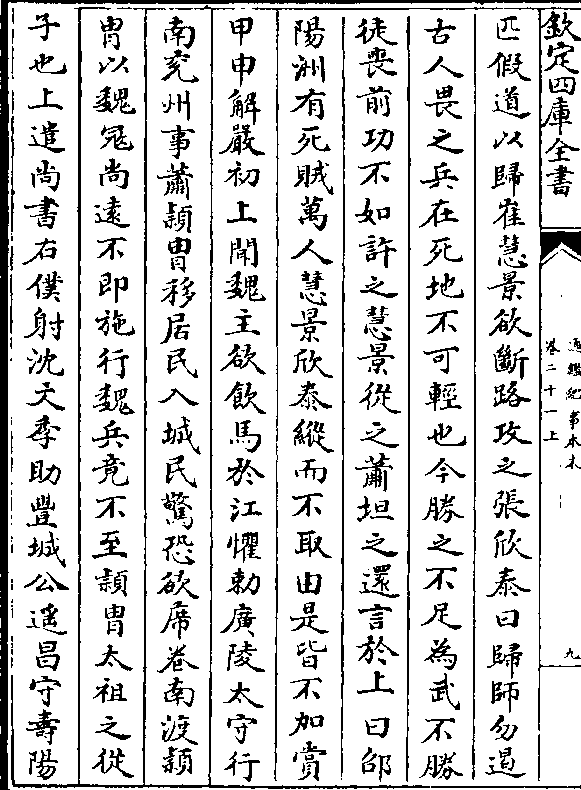 欽定四庫全書
通鑑紀事本末
卷二十一上
九
匹假道以歸崔慧景欲斷路攻之張欣泰曰歸師勿遏
古人畏之兵在死地不可輕也今勝之不足為武不勝
徒喪前功不如許之慧景從之蕭坦之還言於上曰邵
陽洲有死賊萬人慧景欣泰縱而不取由是皆不加賞
甲申解嚴初上聞魏主欲飲馬於江懼勅廣陵太守行
南兖州事蕭穎胄移居民入城民驚恐欲席卷南渡穎
胄以魏冦尚遠不即施行魏兵竟不至穎胄太祖之從
子也上遣尚書右僕射沈文季助豐城公遥昌守壽陽